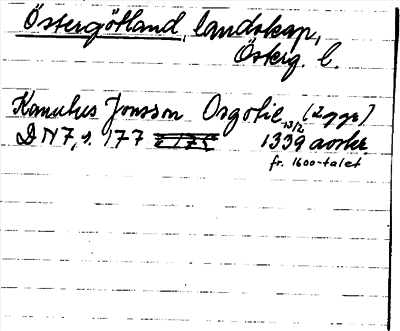 Östergötland, landskap,
Östg. l.
Kanutus Jonsson Osgotie (2 ggr)
DN 7, s. 177 13/2 1339 avskr.
fr. 1600-talet